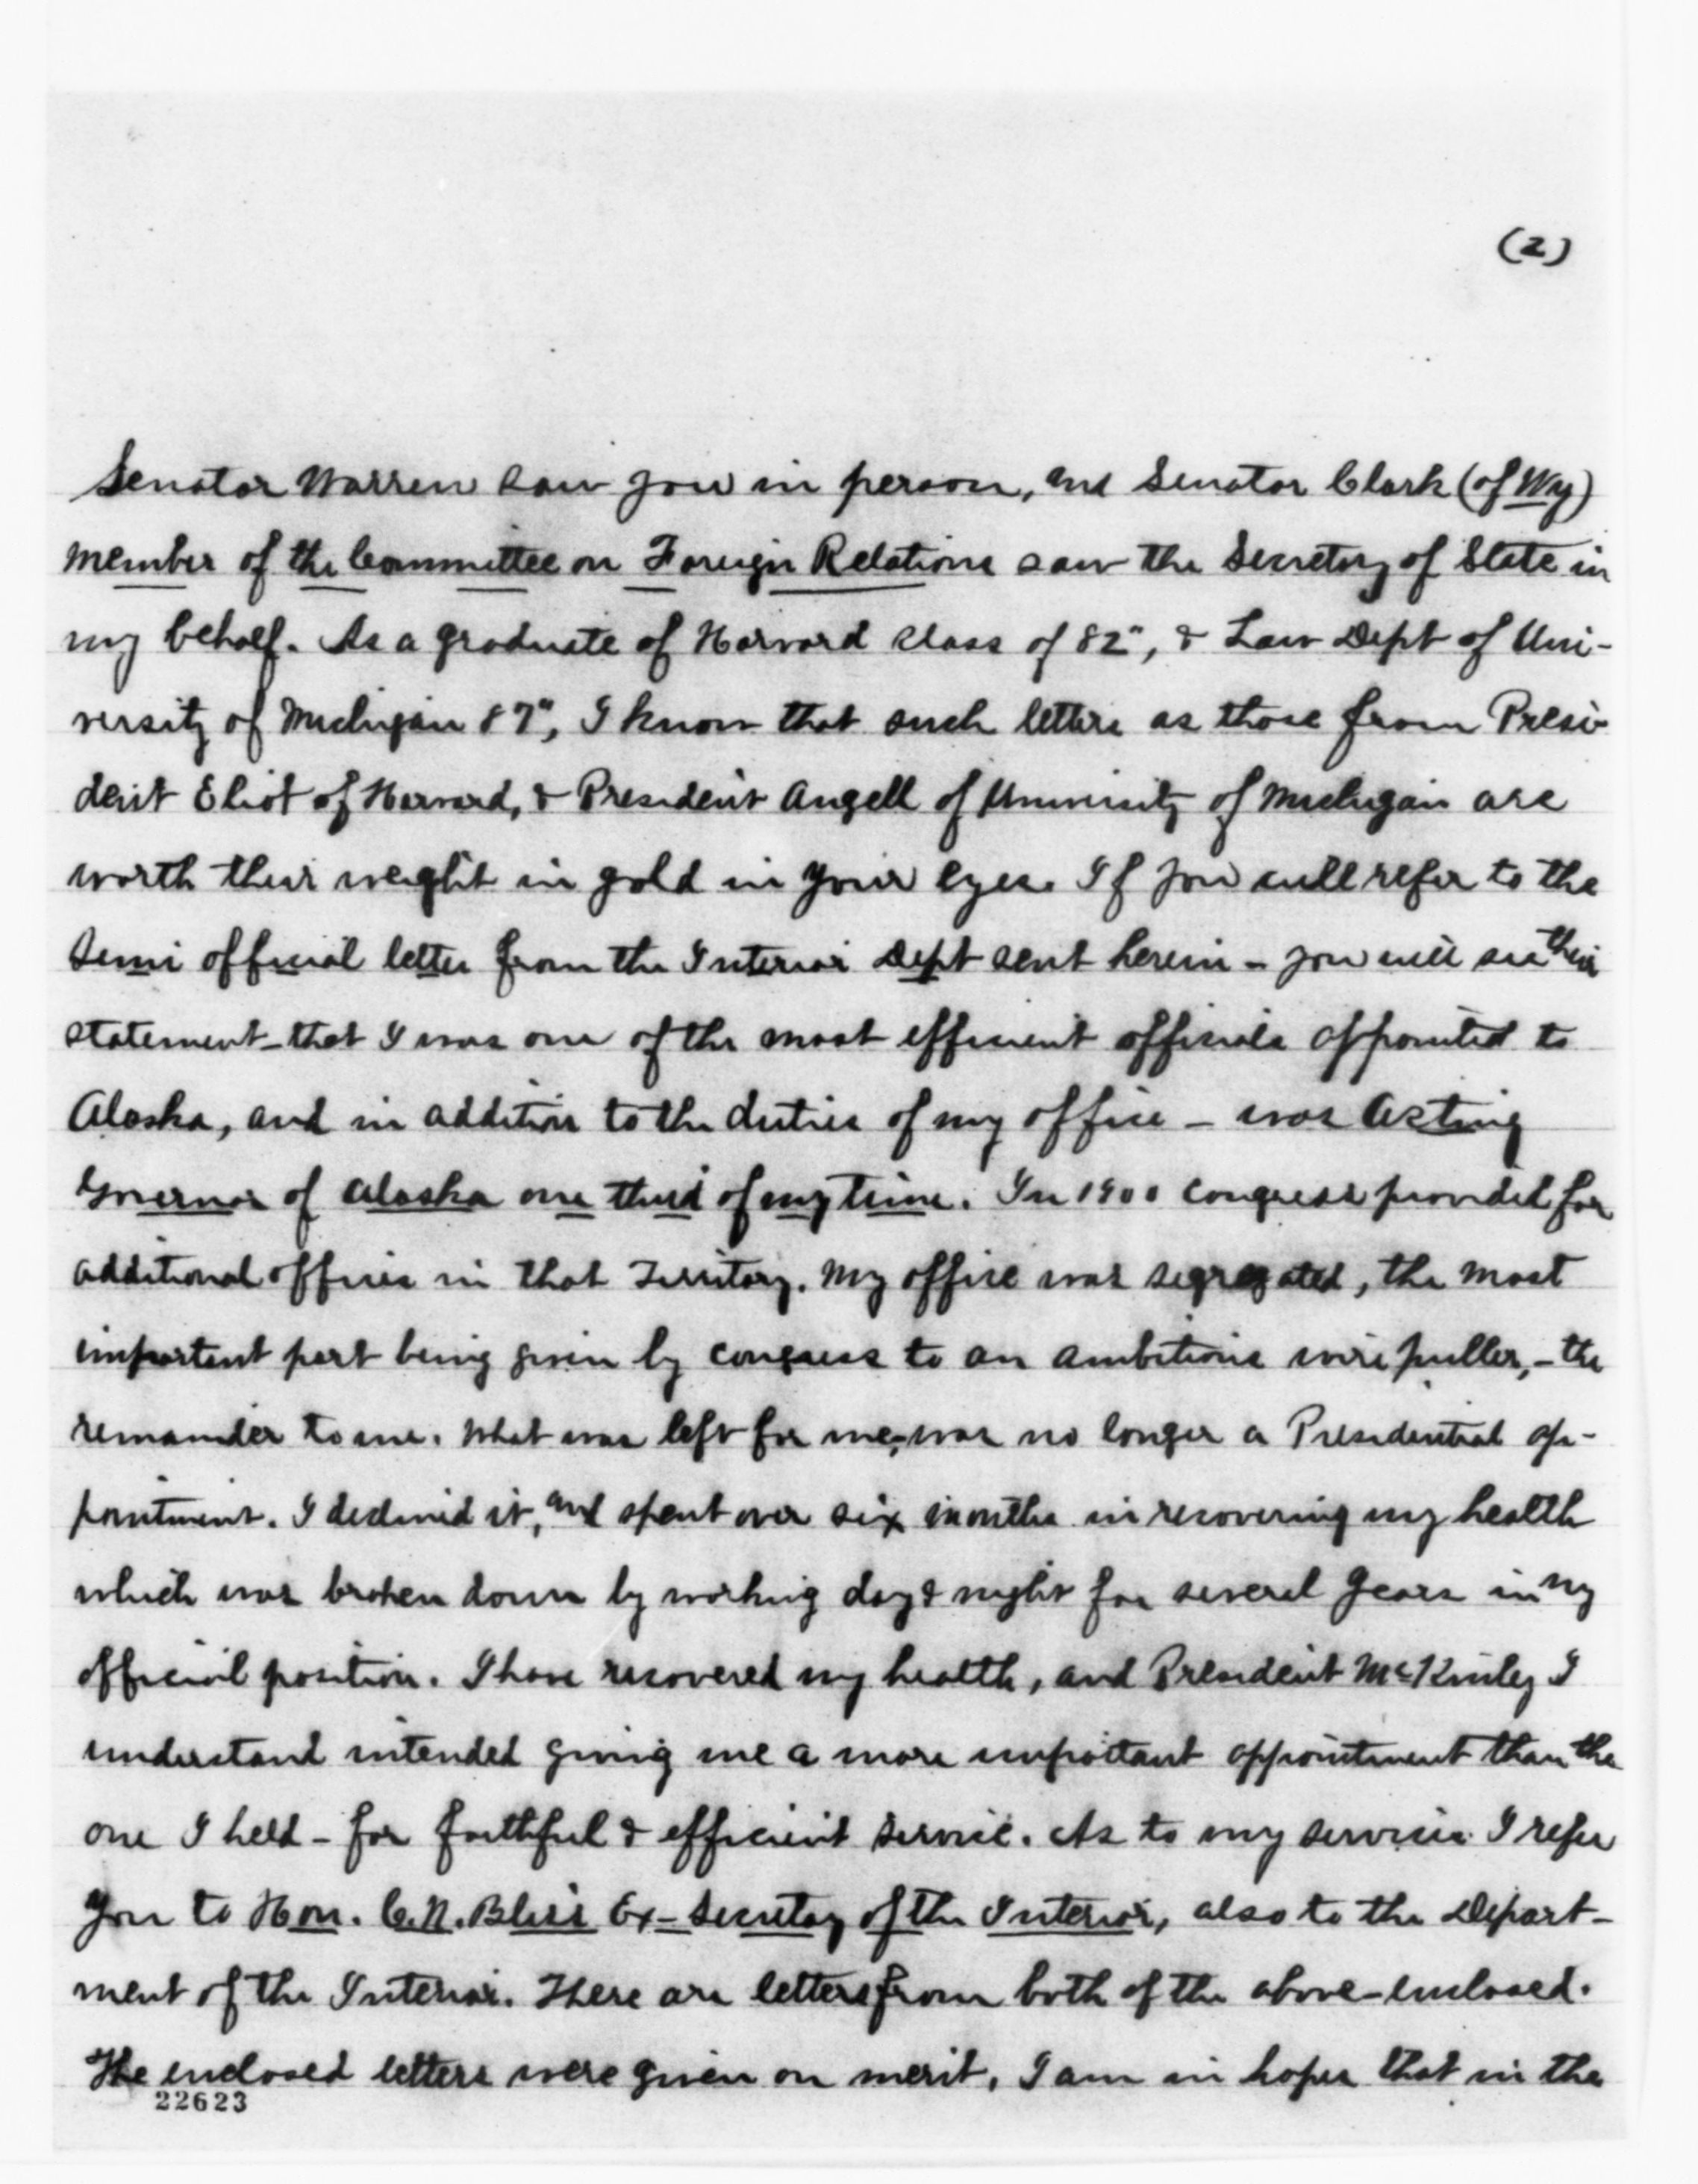 (2)
Senator Warren saw you in person, and Senator Clark (of Wy)
member of the Committee on Foreign Relations saw the Secretary of State in
my behalf. As a graduate of Harvard Class of 82", & Law Dept of Uni-
versity of Michigan 87", I know that such letters as those from Presi-
dent Eliot of Harvard, & President Angell of University of Michigan are
worth their weight in gold in your eyes. If you will refer to the
Semi official letter from the Interior Dept sent herein - you will see their
statement - that I was one of the most efficient officials appointed to
Alaska, and in addition to the duties of my office - was Acting
Governor of Alaska one third of my time. In 1900 Congress provided for
additional offices in that Territory. My office was segregated, the most
important part being given by congress to an ambitious wire puller, - the
remainder to me. What was left for me, was no longer a Presidential ap-
pointment. I declined it, and spent over six months in recovering my health
which was broken down by working day & night for several years in my
official position. I have recovered my health, and President McKinley I
understand intended giving me a more important appointment than the
one I held - for faithful & efficient service. As to my services I refer
you to Hon. C. N. Bliss Ex-Secretary of the Interior, also to the Depart-
ment of the Interior. There are letters from both of the above - enclosed.
The enclosed letters were given on merit, I am in hopes that in the
22623